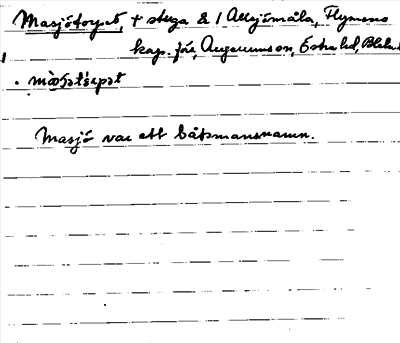 Masjötorpet, + stuga å 1 Allgömåla, Flymens
kap. förs, Augerums sn, Östra hd, Blek
Masjö var ett båtsmansnamn.